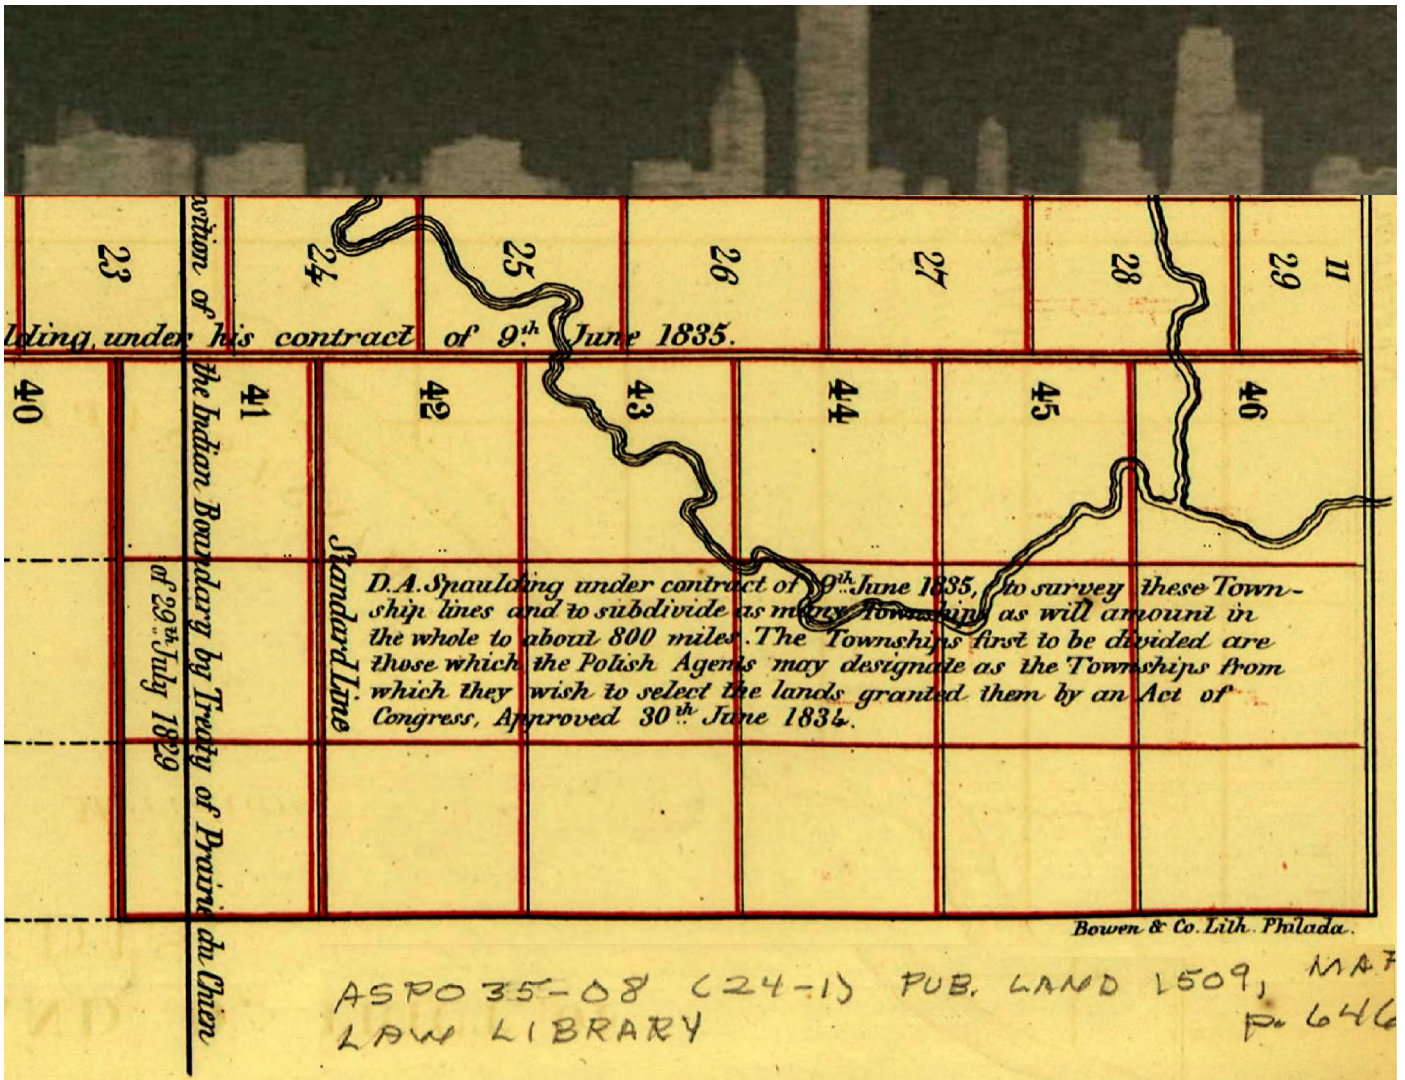 23
24
25
26
27
28
29
11
lding, under his contract of 9th June 1835.
40
41
42
43
44
45
46
sition of the Indian Boundary by Treaty of Prairie du Chien
of 29th July 1829
Standard Line
D.A. Spaulding under contract of 9th June 1835, to survey these Town-
ship lines and to subdivide as many Townships as will amount in
the whole to about 800 miles. The Townships first to be divided are
those which the Polish Agents may designate as the Townships from
which they wish to select the lands granted them by an Act of
Congress, Approved 30th June 1834.
Bowen & Co. Lith. Philada.
ASP035-08 (24-1) PUB. LAND 1509, MAP
LAW LIBRARY p. 646